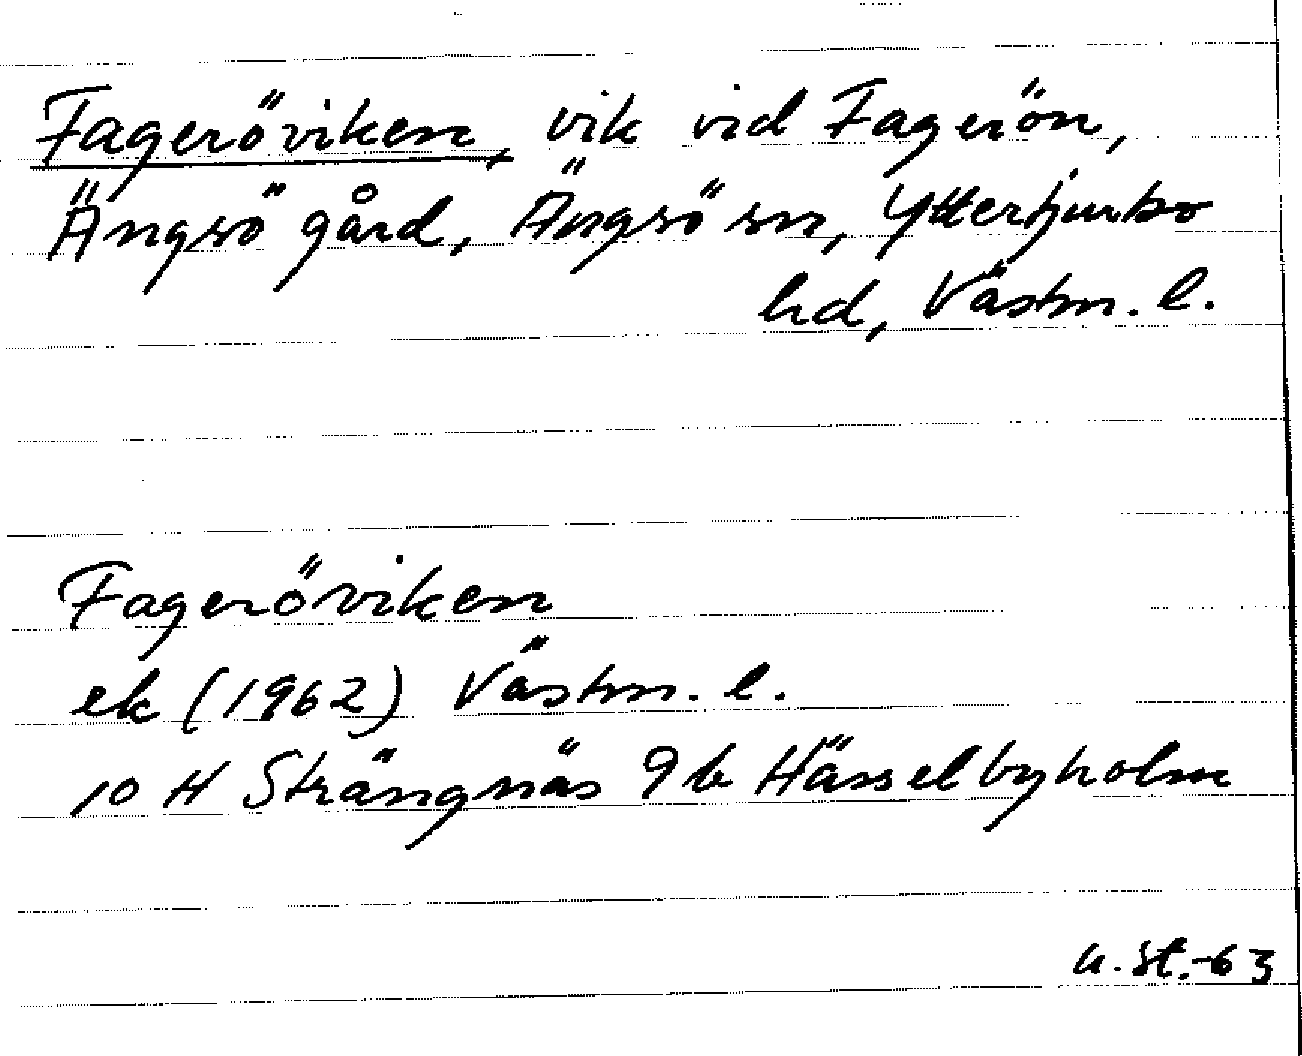 Fageröviken, vik vid Fagerön,
Ängsö gård, Ängsö sn, Yttertjurbo
hd, Västm. l.
Fageröviken
ek (1962) Västm. l.
10 H Strängnäs 9 b Hässelbyholm
u. st.-63